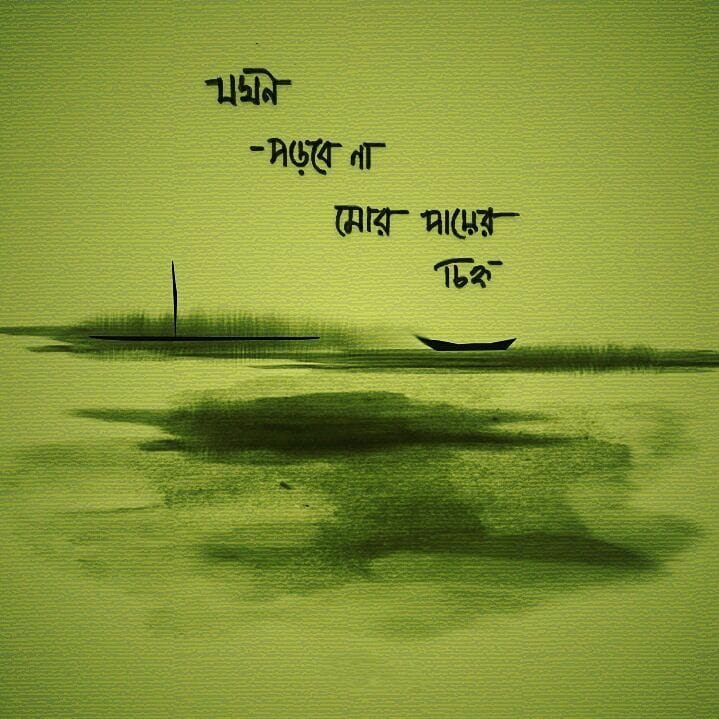 যখন
-পড়বে না
মোর পায়ের
চিহ্ন